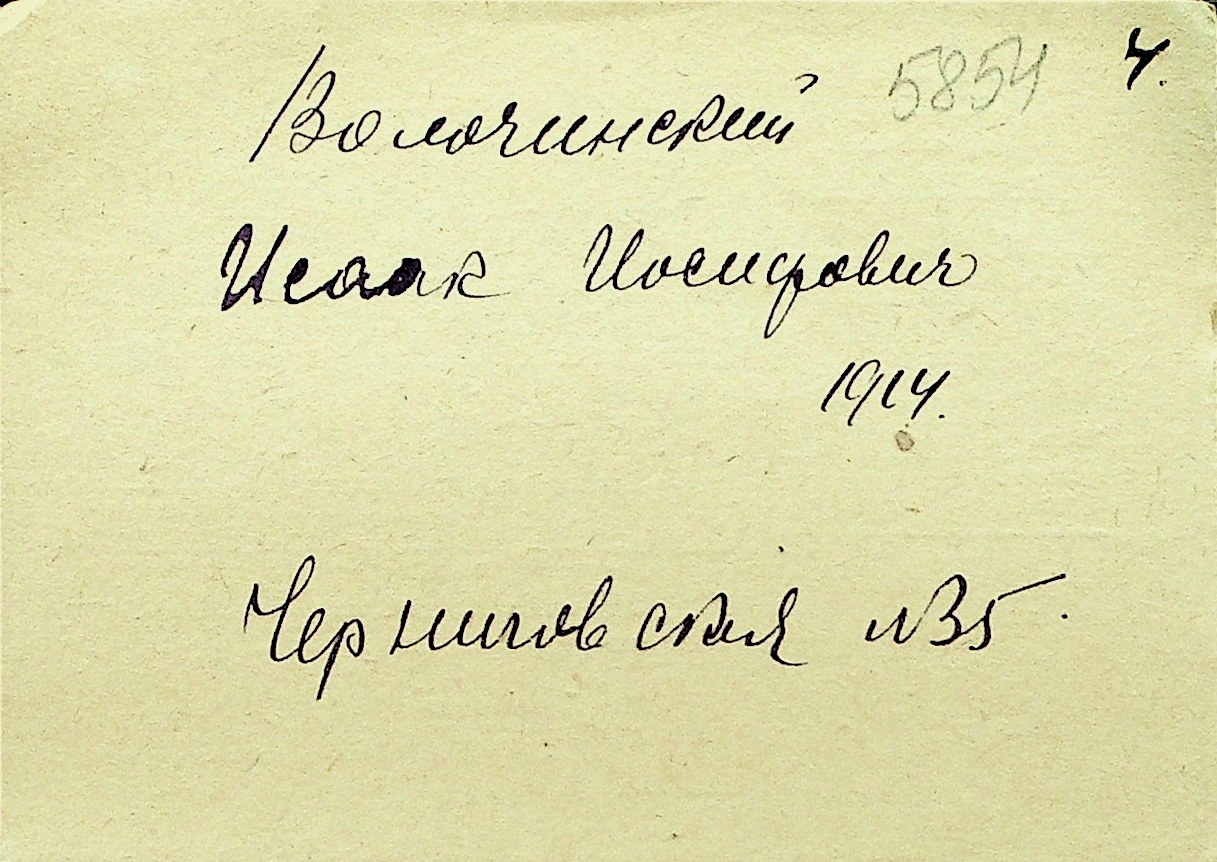 5854 4.
Волочинский
Исаак Иосифович
1914.
Черниговская №35.